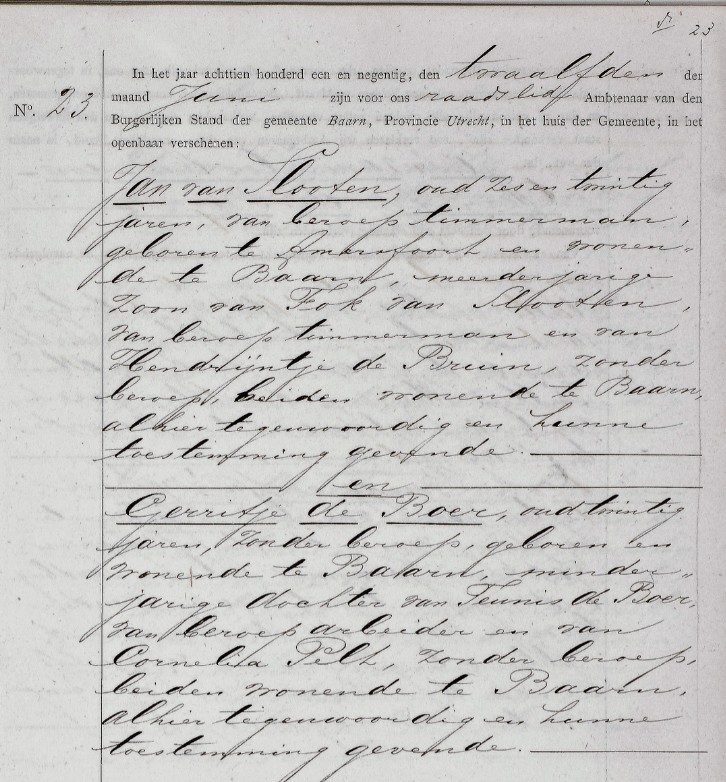 23
Nº. 23.
In het jaar achttien honderd een en negentig, den twaalfden der
maand Juni zijn voor ons raadslid Ambtenaar van den
Burgerlijken Stand der gemeente Baarn, Provincie Utrecht, in het huis der Gemeente, in het
openbaar verschenen:
Jan van Slooten, oud zes en twintig
jaren, van beroep timmerman,
geboren te Amersfoort en wonen„
de te Baarn, meerderjarige
zoon van Fok van Slooten,
van beroep timmerman en van
Hendrijntje de Bruin, zonder
beroep, beiden wonende te Baarn,
alhier tegenwoordig en hunne
toestemming gevende.
en
Gerritje de Boer, oud twintig
jaren, zonder beroep, geboren en
wonende te Baarn, minder„
jarige dochter van Teunis de Boer,
van beroep arbeider en van
Cornelia Pelt, zonder beroep,
beiden wonende te Baarn,
alhier tegenwoordig en hunne
toestemming gevende.